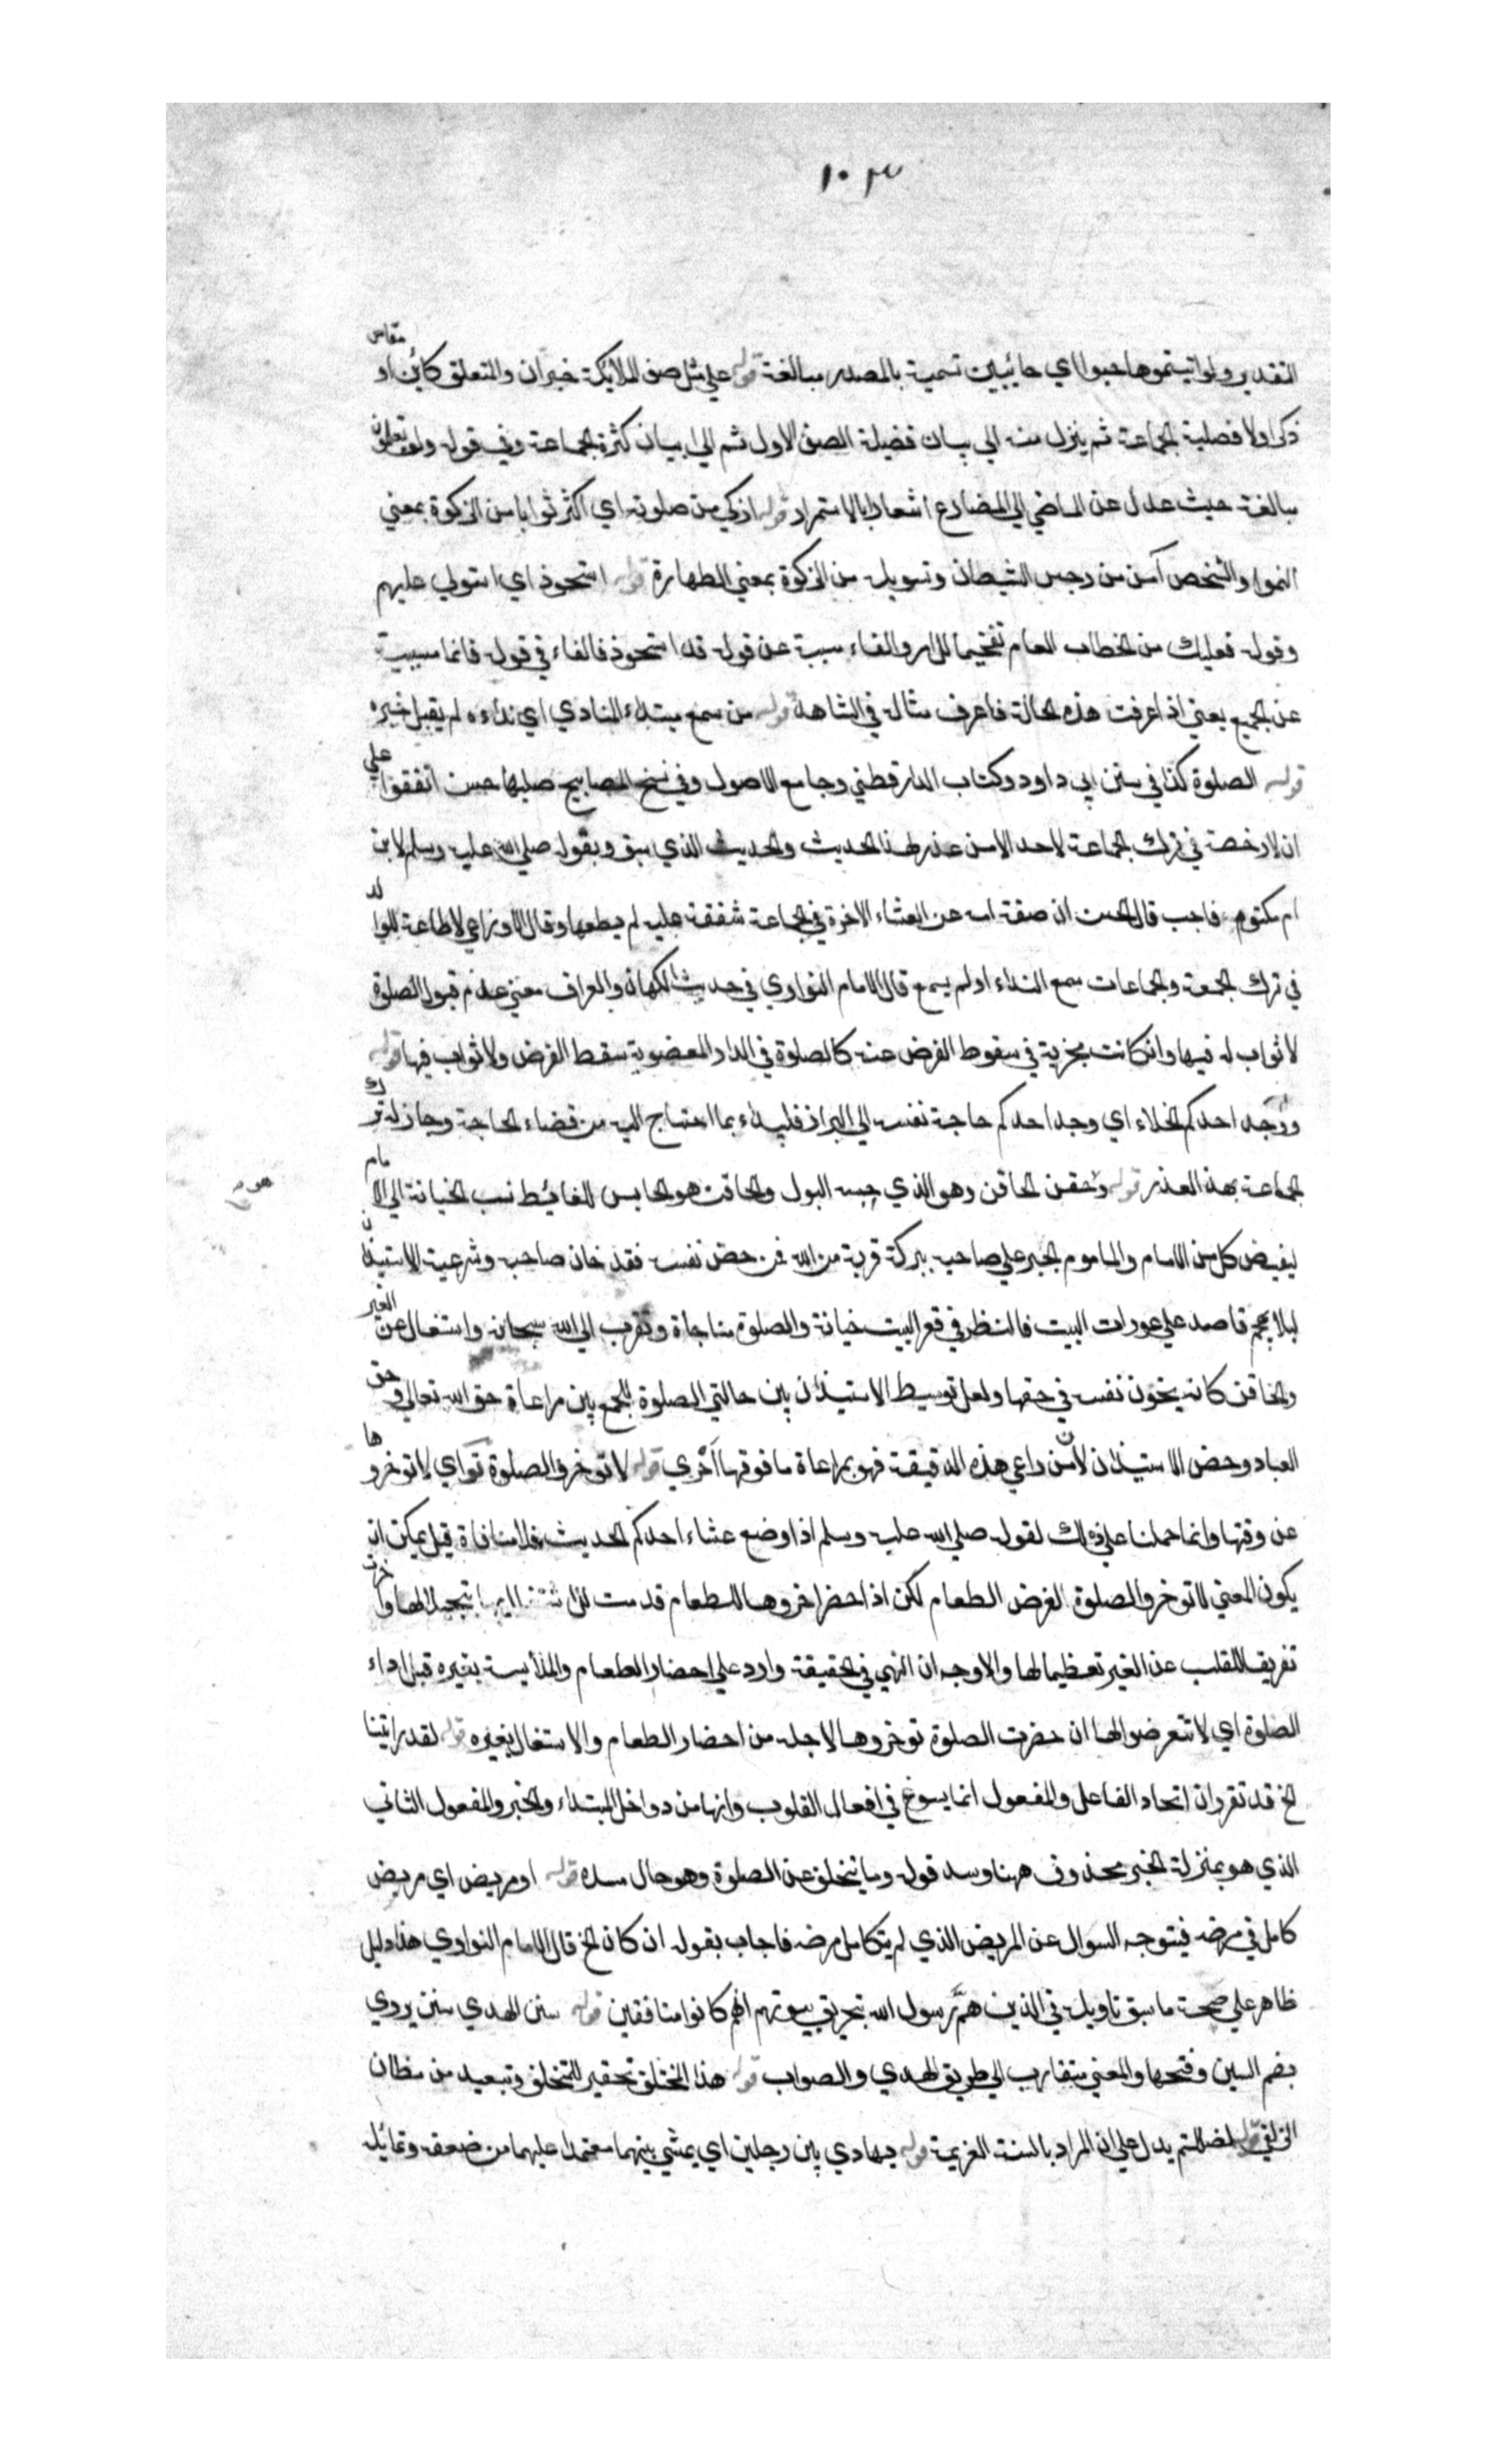 ١٠٣
التقدير ولو اتيتموها حبوا اي حابيين تسمية بالمصدر مبالغة قوله علي مثل صف الملائكة خبر ان والمتعلق كاين او مقاس
ذكر اولا فضلية الجماعة ثم ينزل منه الي بيان فضيلة الصف الاول ثم الي بيان كثرة الجماعة وفي قوله ولو تعلمون
مبالغة حيث عدل عن الماضي الي المضارع اشعارا بالاستمرار قوله ازكي من صلوته اي اكثر ثوابا من الزكوة بمعني
النمو او الشخص آمن من رجس الشيطان وتسويله من الزكوة بمعني الطهارة قوله استحوذ اي استولي عليهم
وقوله فعليك من الخطاب العام تفخيما للامر والفاء مسببة عن قوله قد استحوذ فالفاء في قوله فانما مسببة
عن الجميع يعني اذا عرفت هذه الحالة فاعرف مثاله في الشاهد قوله من سمع مبتداء المنادي اي نداءه لم يقبل خبره
قوله الصلوة كذا في سنن ابي داود وكتاب الدارقطني وجامع الاصول وفي نسخ المصابيح صليها حسن اتفقوا علي
ان لا رخصة في ترك الجماعة لاحد الا من عذر لهذا الحديث والحديث الذي سبق وبقوله صلي الله عليه وسلم لابن
ام مكتوم فاجب قال الحسن ان منعته امه عن العشاء الاخرة في الجماعة شفقة عليه لم يطعها وقال الاوزاعي لا طاعة للوالد
في ترك الجمعة والجماعات سمع النداء او لم يسمع قال الامام النواوي في حديث الكهان والعراف معني عدم قبول الصلوة
لا ثواب له فيها وان كانت مجزية في سقوط الفرض عنه كالصلوة في الدار المغصوبة سقط الفرض ولا ثواب فيها قوله
ووجد احدكم الخلاء اي وجد احدكم حاجة نفسه الي البراز فليبداء بما احتاج اليه من قضاء الحاجة وجاز له ترك
الجماعة بهذا العذر قوله وحقن الحاقن وهو الذي حبس البول والحاقب هو الحابس للغائط نسب الخيانة الي الامام
ليفيض كل من الامام والماموم الخير علي صاحبه ببركة قربه من الله فمن خص نفسه فقد خان صاحبه وشرعية الاستيذان
ليلا يهجم قاصد علي عورات البيت فالنظر في قعر البيت خيانة والصلوة مناجاة وتقرب الي الله سبحانه واشتغال عن الغير
والحاقن كانه يخون نفسه في حقها ولعل توسيط الاستيذان بين حالتي الصلوة للجمع بين مراعاة حق الله تعالي وحق
العباد وخص الاستيذان لان من راعي هذه الدقيقة فهو بمراعاة ما فوقها احري قوله لا توخروا الصلوة اي لا توخروها
عن وقتها وانما حملنا علي ذلك لقوله صلي الله عليه وسلم اذا وضع عشاء احدكم الحديث فلا منافاة قيل يمكن ان
يكون المعني لا توخروا الصلوة لغرض الطعام لكن اذا حضر اخروها للطعام قدمت تبجيلا لها واخرت
تفريغا للقلب عن الغير تعظيما لها والاوجه ان النهي في الحقيقة وارد علي احضار الطعام والملابسة بغيره قبل اداء
الصلوة اي لا تتعرضوا لها ان حضرت الصلوة توخروها لاجله من احضار الطعام والاشتغال بغيره قوله لقد رايتنا
الخ قد تقرر ان اتحاد الفاعل والمفعول انما يسوغ في افعال القلوب وانها من دواخل المبتداء والخبر والمفعول الثاني
الذي هو بمنزلة الخبر محذوف ههنا وسد قوله وما يتخلف عن الصلوة وهو حال مسده قوله او مريض اي مريض
كامل في مرضه فيتوجه السوال عن المريض الذي لم يتكامل مرضه فاجاب بقوله ان كان الخ قال الامام النواوي هذا دليل
ظاهر علي صحة ما سبق تاويله في الذين هم رسول الله بتحريق بيوتهم انهم كانوا منافقين قوله سنن الهدي سنن يروي
بضم السين وفتحها والمعني متقارب اي طريق الهدي والصواب قوله هذا المتخلف تحقير للمتخلف وتبعيد من مظان
الزلفي قوله لضللتم يدل علي ان المراد بالسنة العزيمة قوله يهادي بين رجلين اي يمشي بينهما معتمدا عليهما من ضعفه وتمايله